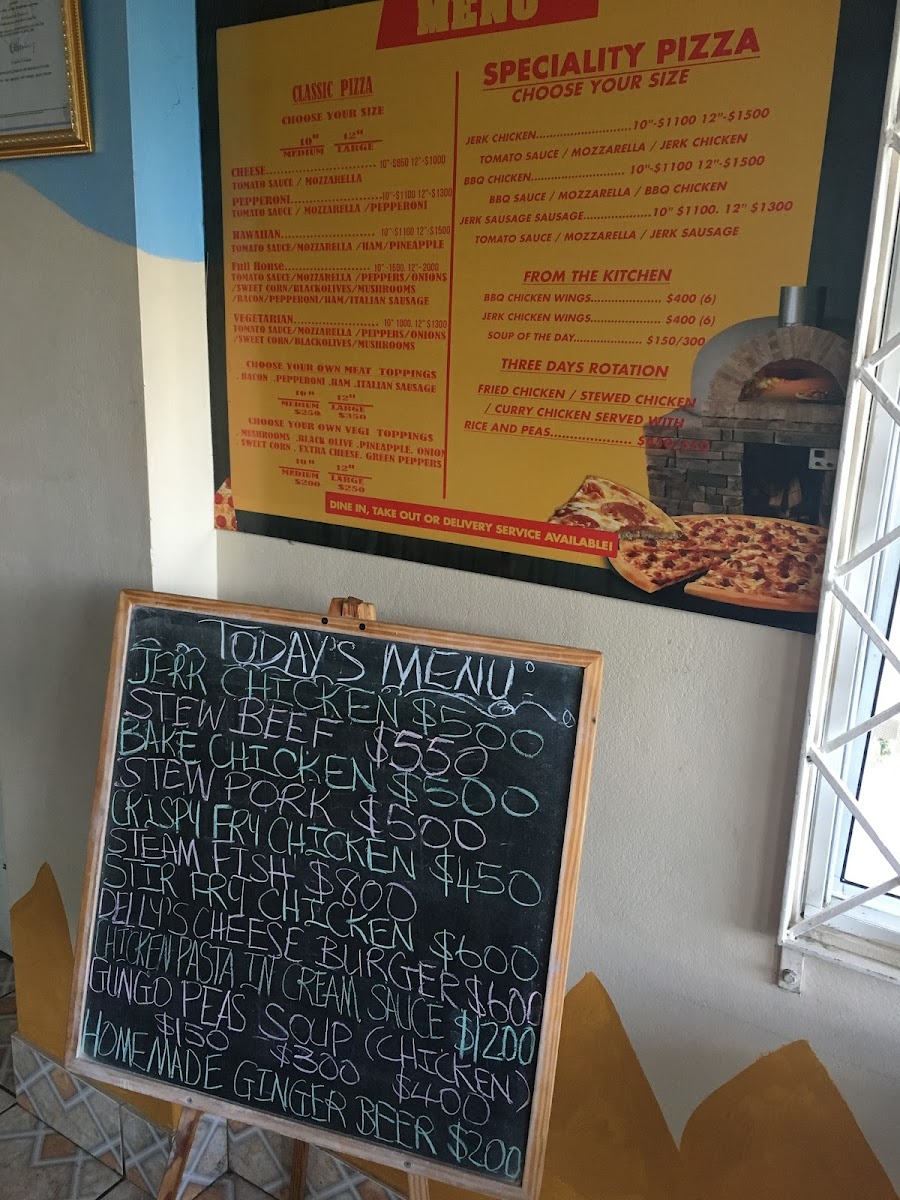 MENU
CLASSIC PIZZA
CHOOSE YOUR SIZE
10" 12"
MEDIUM LARGE
CHEESE........................... 10"-$850 12"-$1000
TOMATO SAUCE / MOZZARELLA
PEPPERONI......................10"-$1100 12"-$1300
TOMATO SAUCE / MOZZARELLA /PEPPERONI
HAWAIIAN........................ 10" $1100 12"-$1500
TOMATO SAUCE/MOZZARELLA /HAM/PINEAPPLE
Full House...................... 10"-1600. 12"-2000
TOMATO SAUCE/MOZZARELLA /PEPPERS/ONIONS
/SWEET CORN/BLACKOLIVES/MUSHROOMS
/BACON/PEPPERONI/HAM/ITALIAN SAUSAGE
VEGETARIAN..................... 10" 1000. 12" $1300
TOMATO SAUCE/MOZZARELLA /PEPPERS/ONIONS
/SWEET CORN/BLACKOLIVES/MUSHROOMS
CHOOSE YOUR OWN MEAT TOPPINGS
. BACON .PEPPERONI .HAM .ITALIAN SAUSAGE
10" 12"
MEDIUM LARGE
$250 $350
CHOOSE YOUR OWN VEGI TOPPINGS
. MUSHROOMS .BLACK OLIVE .PINEAPPLE. ONION
SWEET CORN . EXTRA CHEESE. GREEN PEPPERS
10" 12"
MEDIUM LARGE
$200 $250
SPECIALITY PIZZA
CHOOSE YOUR SIZE
JERK CHICKEN...........................10"-$1100 12"-$1500
TOMATO SAUCE / MOZZARELLA / JERK CHICKEN
BBQ CHICKEN........................... 10"-$1100 12"-$1500
BBQ SAUCE / MOZZARELLA / BBQ CHICKEN
JERK SAUSAGE SAUSAGE...................10" $1100. 12" $1300
TOMATO SAUCE / MOZZARELLA / JERK SAUSAGE
FROM THE KITCHEN
BBQ CHICKEN WINGS.................... $400 (6)
JERK CHICKEN WINGS.................... $400 (6)
SOUP OF THE DAY.................... $150/300
THREE DAYS ROTATION
FRIED CHICKEN / STEWED CHICKEN
/ CURRY CHICKEN SERVED WITH
RICE AND PEAS....................
DINE IN, TAKE OUT OR DELIVERY SERVICE AVAILABLE!
TODAY'S MENU
JERK CHICKEN $500
STEW BEEF $550
BAKE CHICKEN $500
STEW PORK $500
CRISPY FRY CHICKEN $450
STEAM FISH $800
STIR FRY CHICKEN $600
DELLY'S CHEESE BURGER $600
CHICKEN PASTA IN CREAM SAUCE $1200
GUNGO PEAS SOUP (CHICKEN)
$150 $300 $400
HOMEMADE GINGER BEER $200